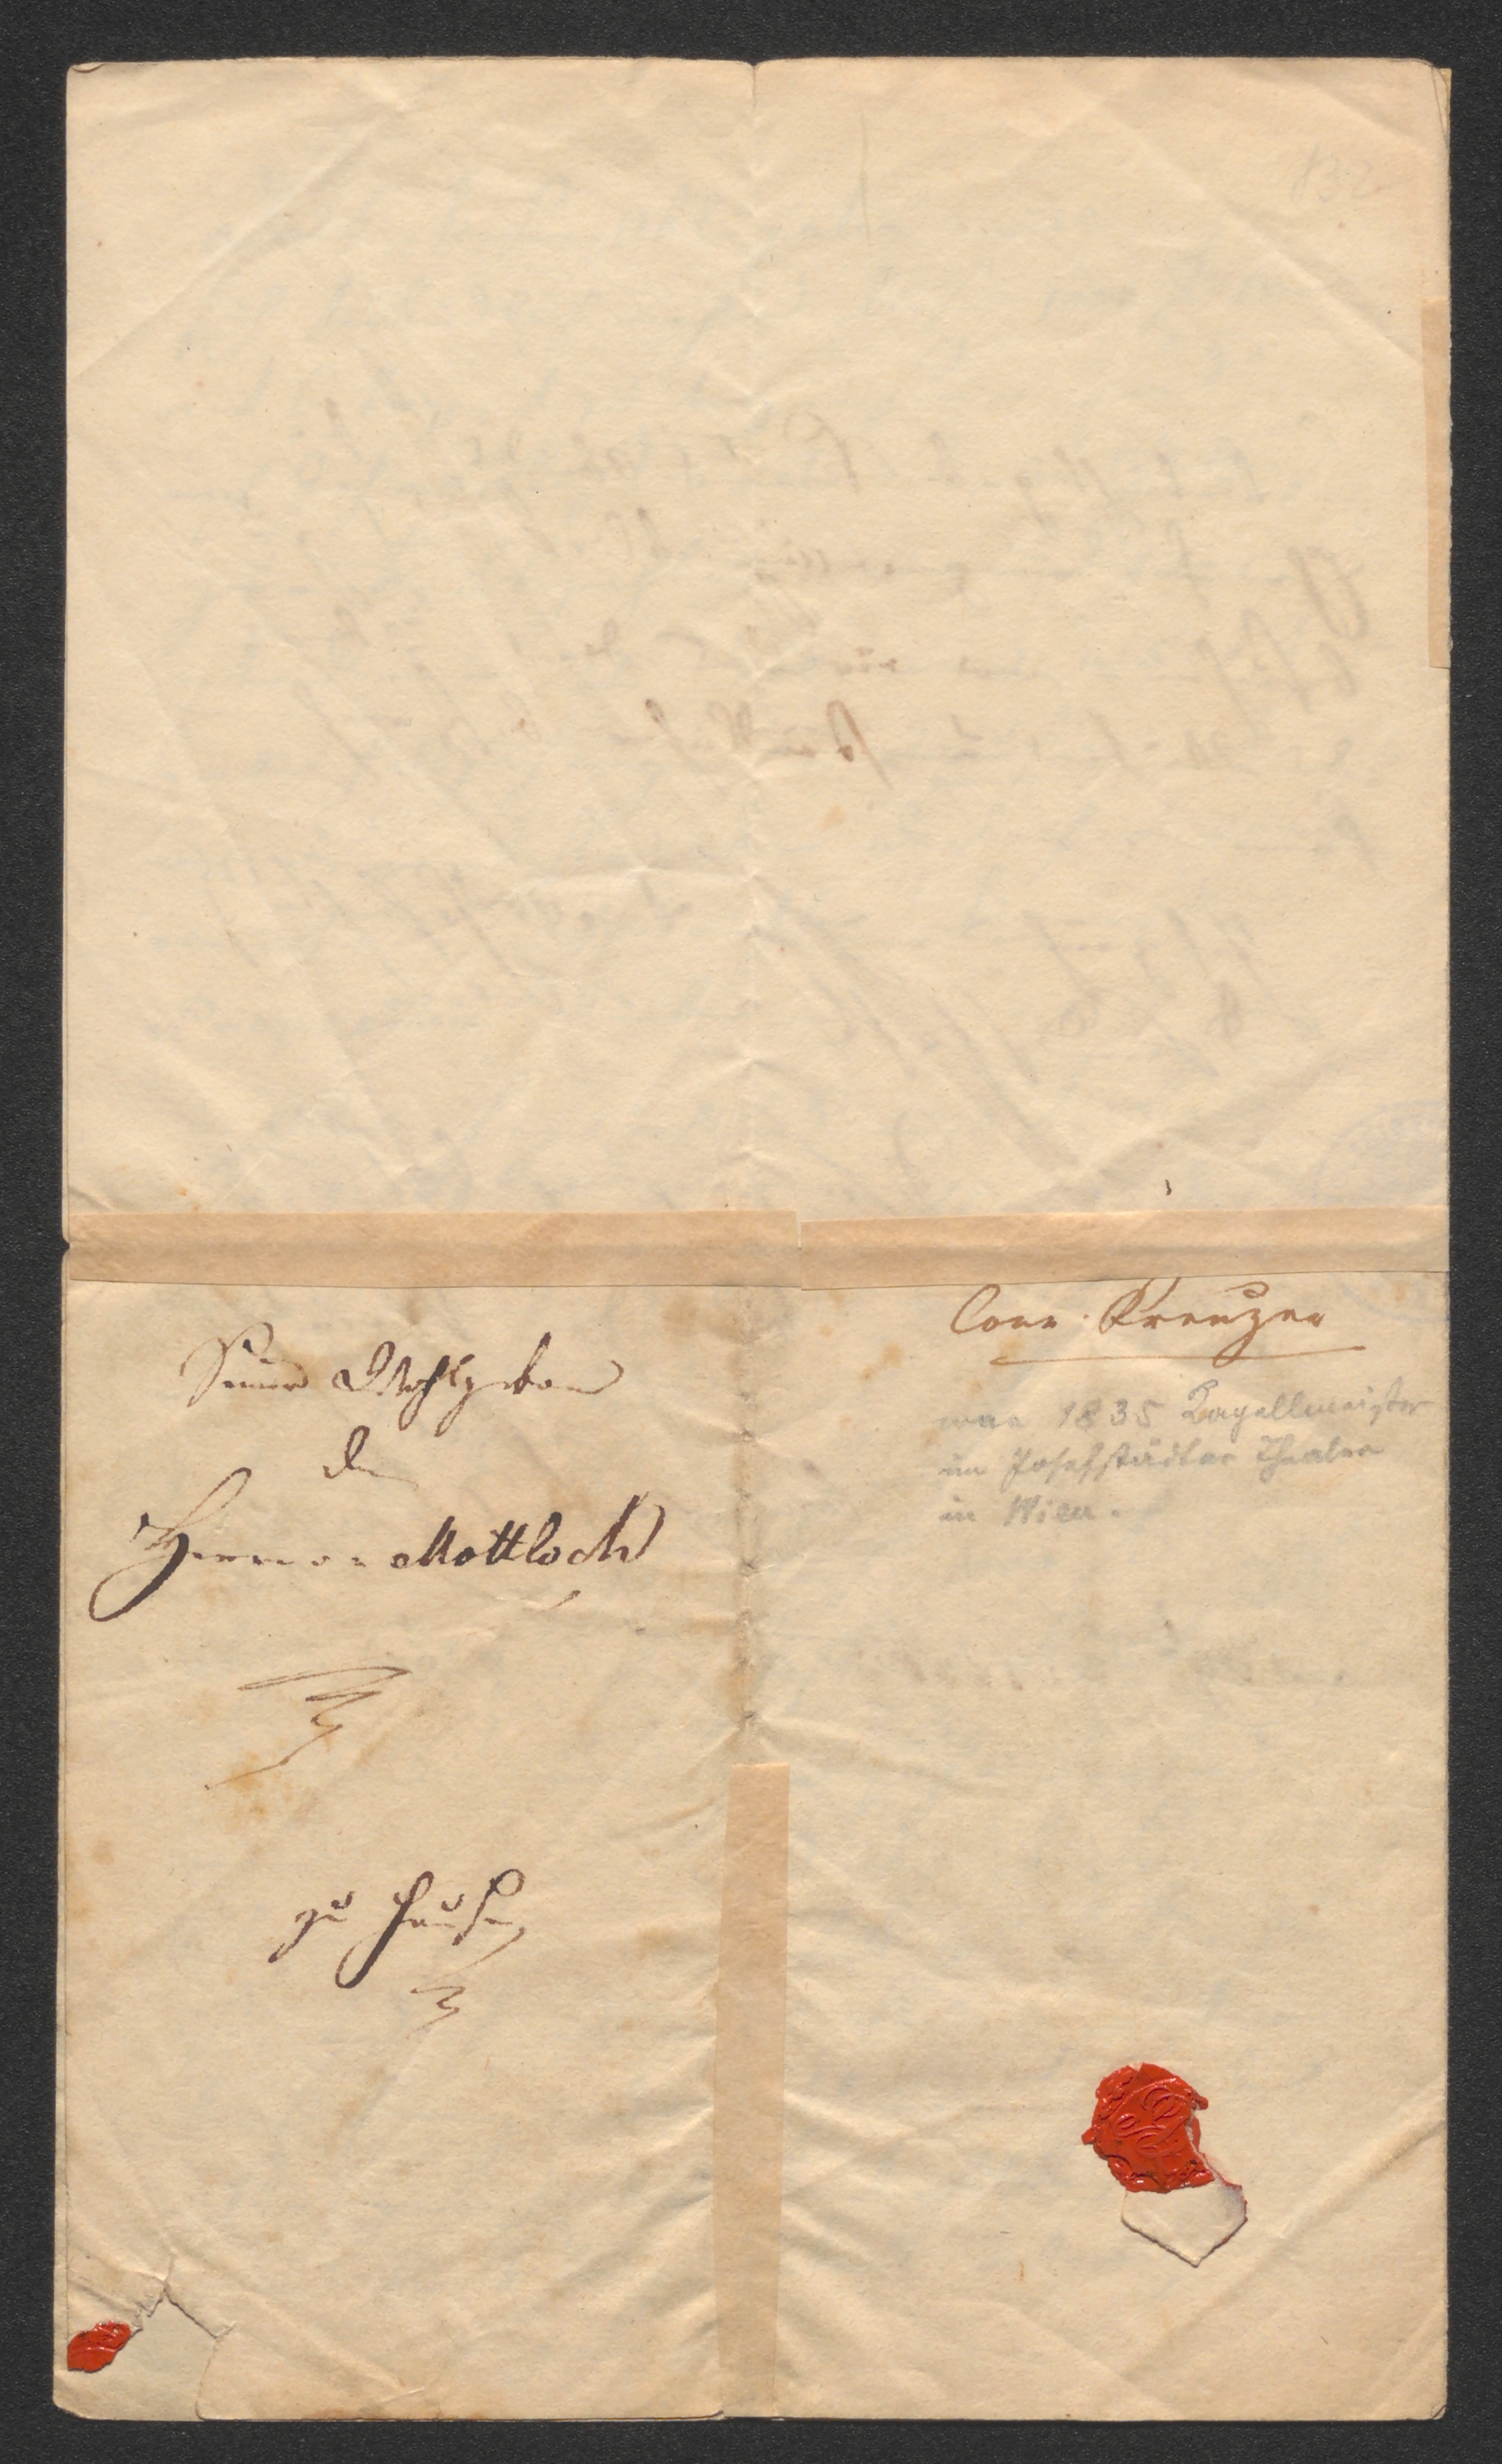 132
Seiner Wohlgeborn
dem
Herrn v. Mottloch
zu Hause
Conr. Kreuzer
war 1835 Kapellmeister
im Josefstädter Theater
in Wien.